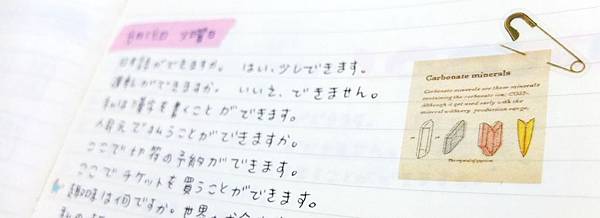 月18日 火曜日
日本語ができますか。 はい、少しできます。
運転ができますか。 いいえ、できません。
私は漢字を書くことができます。
人前で話すことができますか。
ここで切符の予約ができます。
ここでチケットを買うことができます。
趣味は何ですか。世界
私の
Carbonate minerals
Carbonate minerals are those minerals
containing the carbonate ion, CO32-
although it get used early with the
mineral